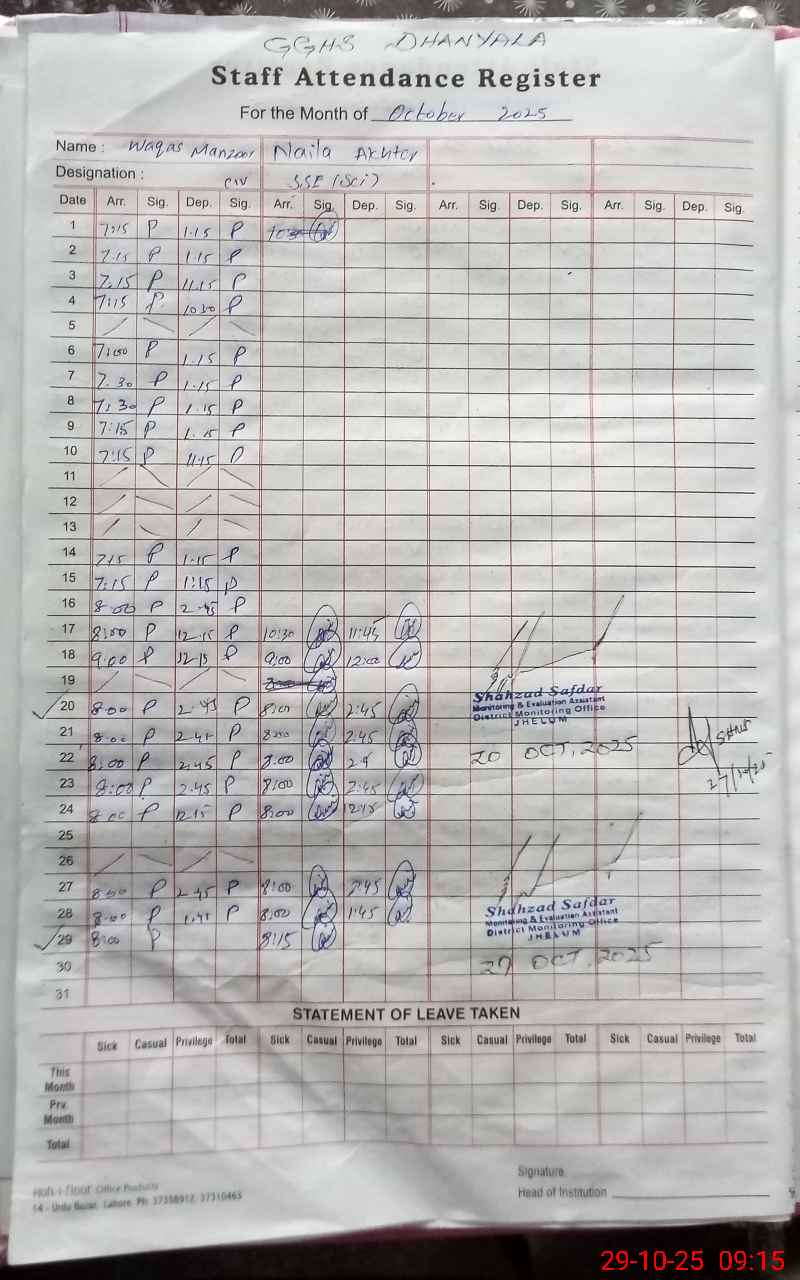 GGHS DHANYALA
Staff Attendance Register
For the Month of October 2025
Name : Waqas Manzoor Naila Akhter
Designation : SSE (Sci)
Date Arr. Sig. Dep. Sig. Arr. Sig. Dep. Sig. Arr. Sig. Dep. Sig. Arr. Sig. Dep. Sig.
1 7:15 P 1.15 P
2 7.15 P 1.15 P
3 7.15 P 11.15 P
4 7:15 P 10 30 P
5
6 7:00 P 1.15 P
7 7.30 P 1.15 P
8 7:30 P 1.15 P
9 7:15 P 1.15 P
10 7:15 P 11:15 P
11
12
13
14 7.15 P 1.15 P
15 7:15 P 1:15 P
16 8:00 P 2.45 P
17 8:00 P 12.15 P 10:30 11:45
18 9:00 P 12.15 P 9:00 12:00
19
20 8:00 P 2.45 P 8:00 2:45
21 8:00 P 2.45 P 8:00 2:45
22 8:00 P 2.45 P 8:00
23 8:00 P 2.45 P 8:00 2:45
24 8:00 P 12.15 P 8:00 12:15
25
26
27 8:00 P 2.45 P 8:00 2:45
28 8:00 P 1.45 P 8:00 1:45
29 8:00 P 8:15
30
31
Shahzad Safdar
Monitoring & Evaluation Assistant
District Monitoring Office
JHELUM
20 OCT, 2025
27/10/25
Shahzad Safdar
Monitoring & Evaluation Assistant
District Monitoring Office
JHELUM
27 OCT, 2025
STATEMENT OF LEAVE TAKEN
Sick Casual Privilege Total Sick Casual Privilege Total Sick Casual Privilege Total Sick Casual Privilege Total
This Month
Prv. Month
Total
Office Products
14 - Urdu Bazar, Lahore. Ph: 37358912, 37310465
Signature
Head of Institution
29-10-25 09:15